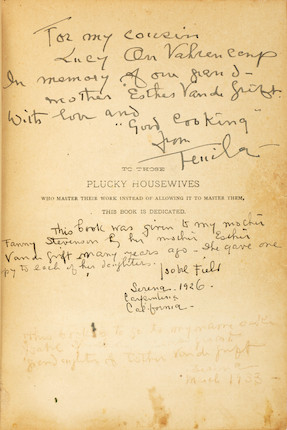 For my cousin
Lucy An Vahrencamp
In memory of our grand-
mother Esther Vande Grift
With love and
"Good Cooking"
from
TO THOSE
PLUCKY HOUSEWIVES
WHO MASTER THEIR WORK INSTEAD OF ALLOWING IT TO MASTER THEM,
THIS BOOK IS DEDICATED.
This book was given to my mother
Fanny Stevenson by her mother Esther
Vande Grift many years ago - She gave one
py to each of her daughters.
Isobel Field
Serena. 1926.
Carpinteria
California -